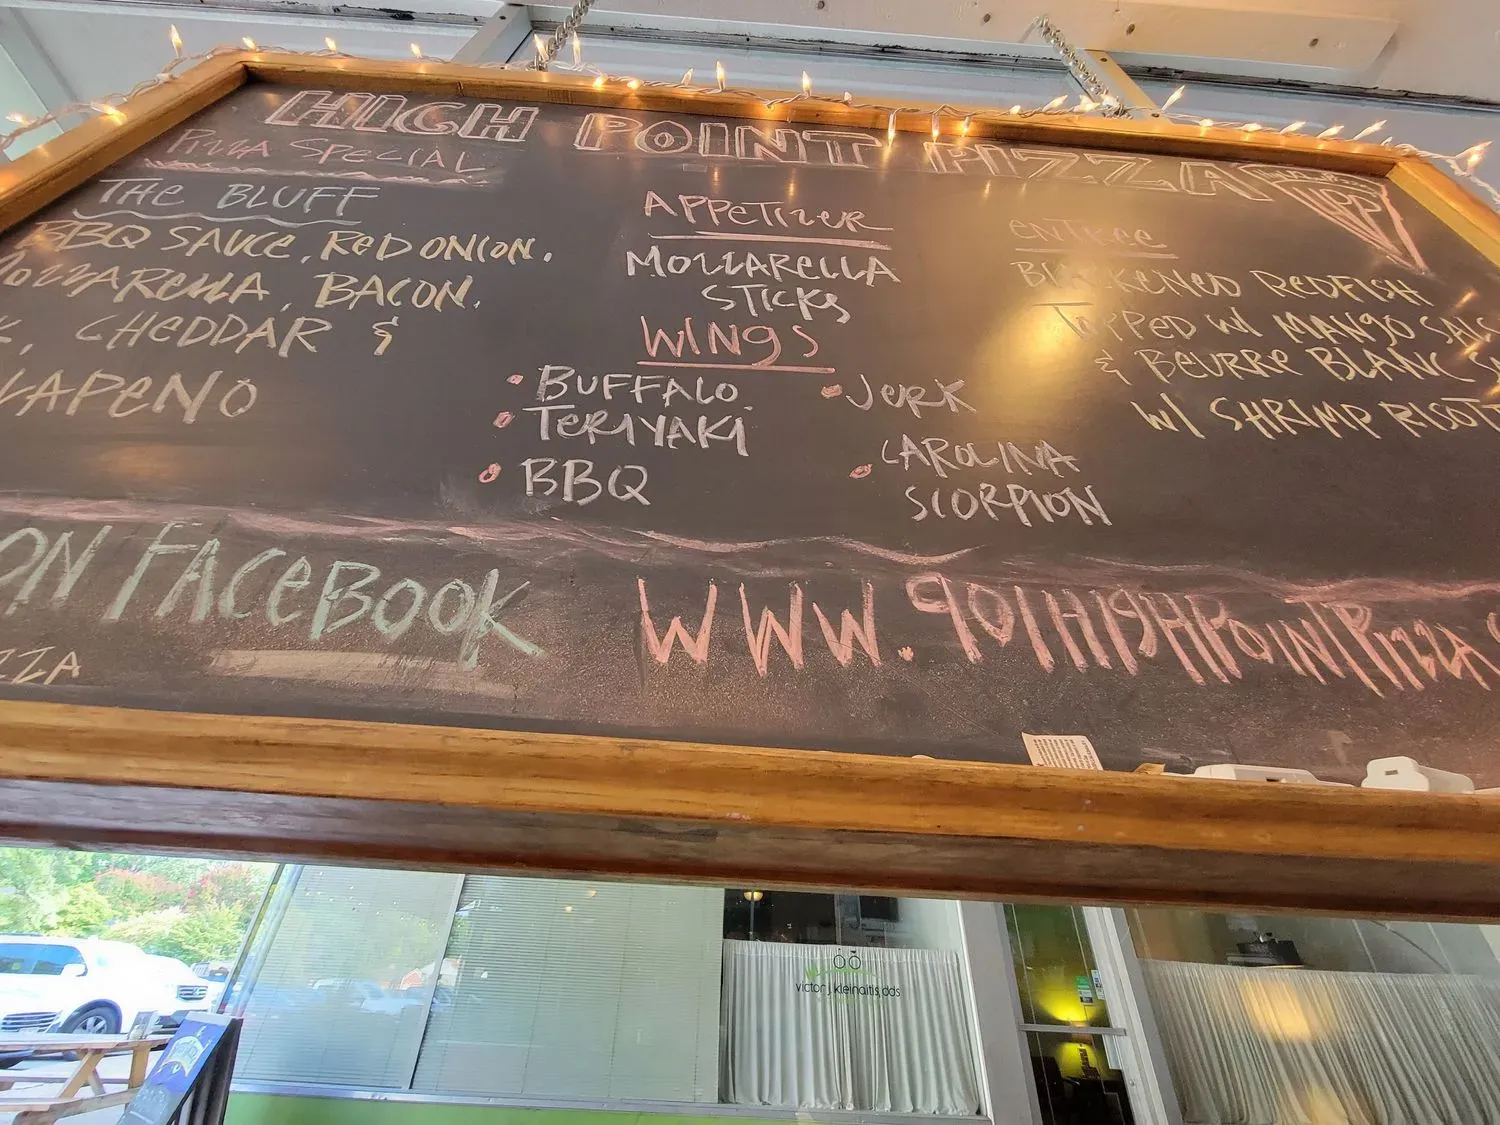 HIGH POINT PIZZA
HPP
PIZZA SPECIAL
THE BLUFF
BBQ SAUCE, RED ONION,
MOZZARELLA, BACON,
CHEDDAR &
LAPENO
APPETIZER
MOZZARELLA
STICKS
WINGS
BUFFALO
TERIYAKI
BBQ
JERK
CAROLINA
SCORPION
ENTREE
BLACKENED REDFISH
TOPPED W/ MANGO SALS
& BEURRE BLANC S
W/ SHRIMP RISOTT
ON FACEBOOK
ZZA
WWW.901HIGHPOINTPIZZA.C
victor j. kleinaitis, dds